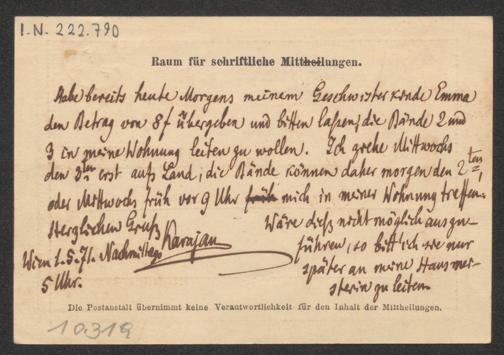 I.N. 222.790
Raum für schriftliche Mittheilungen.
Habe bereits heute Morgens meinem Geschwisterkinde Emma
den Betrag von 8 f übergeben und bitten laßen, die Bände 2 und
3 in meine Wohnung leiten zu wollen. Ich gehe Mittwochs
den 3ten erst aufs Land, die Bände können daher morgen den 2ten,
oder Mittwoch früh vor 9 Uhr früh mich in meiner Wohnung treffen.
Herzlichen Gruß
Karajan
Wien 1.5.71. Nachmittags
5 Uhr.
Wäre dieß nicht möglich auszu-
führen, so bitt ich sie nur
später an meine Hausmei-
sterin zu leiten.
Die Postanstalt übernimmt keine Verantwortlichkeit für den Inhalt der Mittheilungen.
10.319